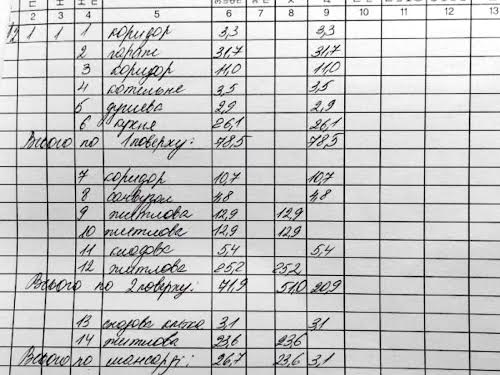 2 3 4 5 6 7 8 9 10 11 12 13
1 1 1 коридор 3,3 3,3
2 гараж 31,7 31,7
3 коридор 11,0 11,0
4 котельне 3,5 3,5
5 душева 2,9 2,9
6 кухне 26,1 26,1
Всього по 1 поверху: 78,5 78,5
7 коридор 10,7 10,7
8 санвузол 4,8 4,8
9 житлова 12,9 12,9
10 житлова 12,9 12,9
11 кладова 5,4 5,4
12 житлова 25,2 25,2
Всього по 2 поверху: 71,9 51,0 20,9
13 сходова клітка 3,1 3,1
14 житлова 23,6 23,6
Всього по мансарді: 26,7 23,6 3,1